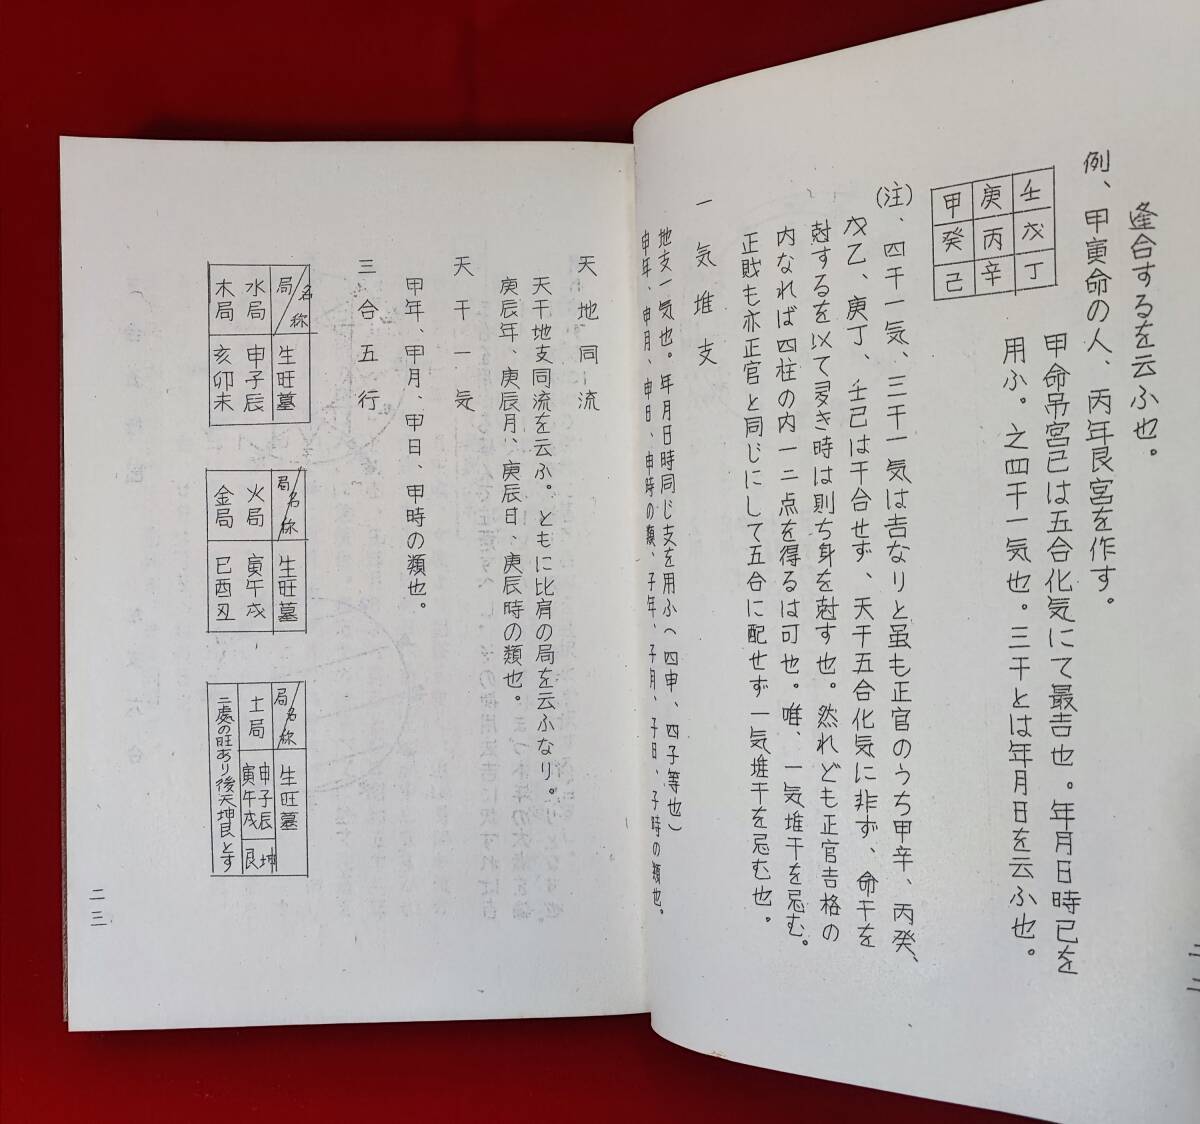 逢合するを云ふ也。
例、甲寅命の人、丙年艮宮を作す。
甲命吊宮己は五合化気にて最吉也。年月日時己を
用ふ。之四干一気也。三干とは年月日を云ふ也。
甲 庚 壬
癸 丙 戊
己 辛 丁
(注)、四干一気、三干一気は吉なりと虽も正官のうち甲辛、丙癸、
戊乙、庚丁、壬己は干合せず、天干五合化気に非ず、命干を
尅するを以て叏き時は則ち身を尅す也。然れども正官吉格の
内なれば四柱の内一二点を得るは可也。唯、一気堆干を忌む。
正財も亦正官と同じにして五合に配せず一気堆干を忌む也。
一気堆支
地支一気也。年月日時同じ支を用ふ(四申、四子等也)
申年、申月、申日、申時の類、子年、子月、子日、子時の類也。
二二
天地同流
天干地支同流を云ふ。ともに比肩の局を云ふなり。
庚辰年、庚辰月、庚辰日、庚辰時の類也。
天干一気
甲年、甲月、甲日、甲時の類也。
三合五行
局/名称 生旺墓
水局 申子辰
木局 亥卯未
局/名称 生旺墓
火局 寅午戌
金局 巳酉丑
局/名称 生旺墓
土局 申子辰 坤
寅午戌 艮
二處の旺あり後天坤艮とす
二三